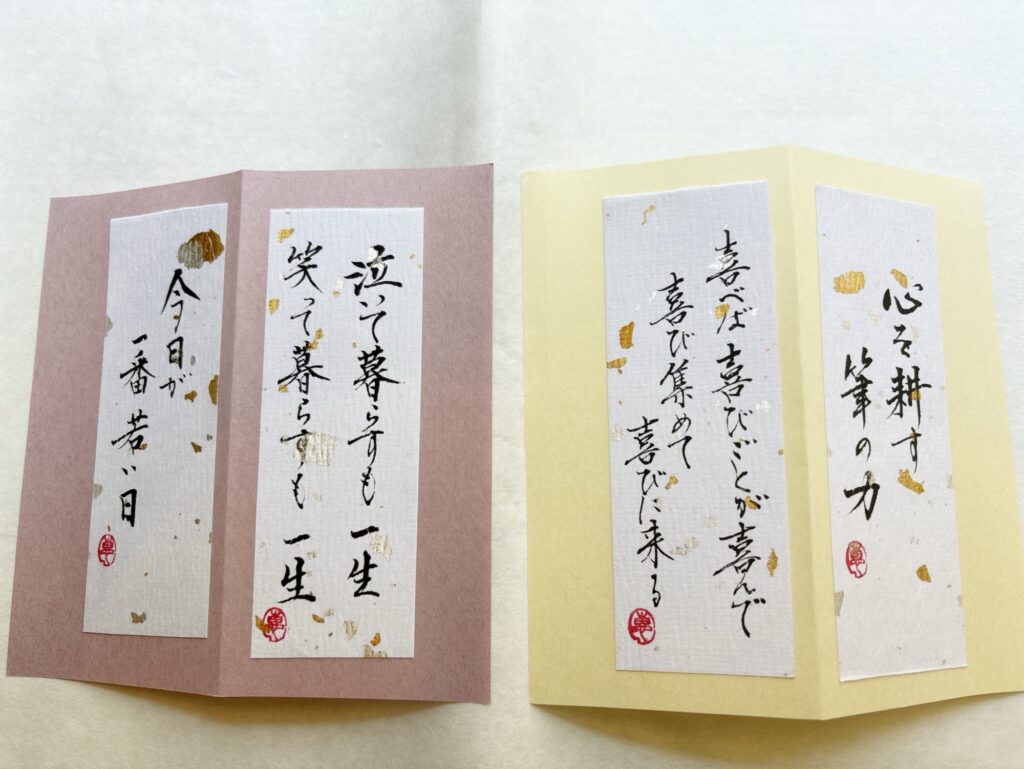 心を耕す
筆の力
喜べば喜びごとが喜んで
喜び集めて
喜びに来る
泣いて暮らすも一生
笑って暮らすも一生
今日が
一番若い日